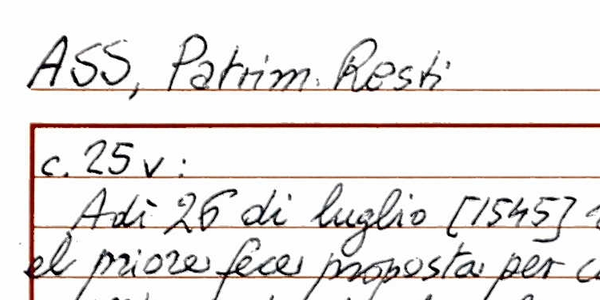 ASS, Patrim. Resti
c. 25 v:
Adì 26 di luglio [1545]
el priore fece proposta per